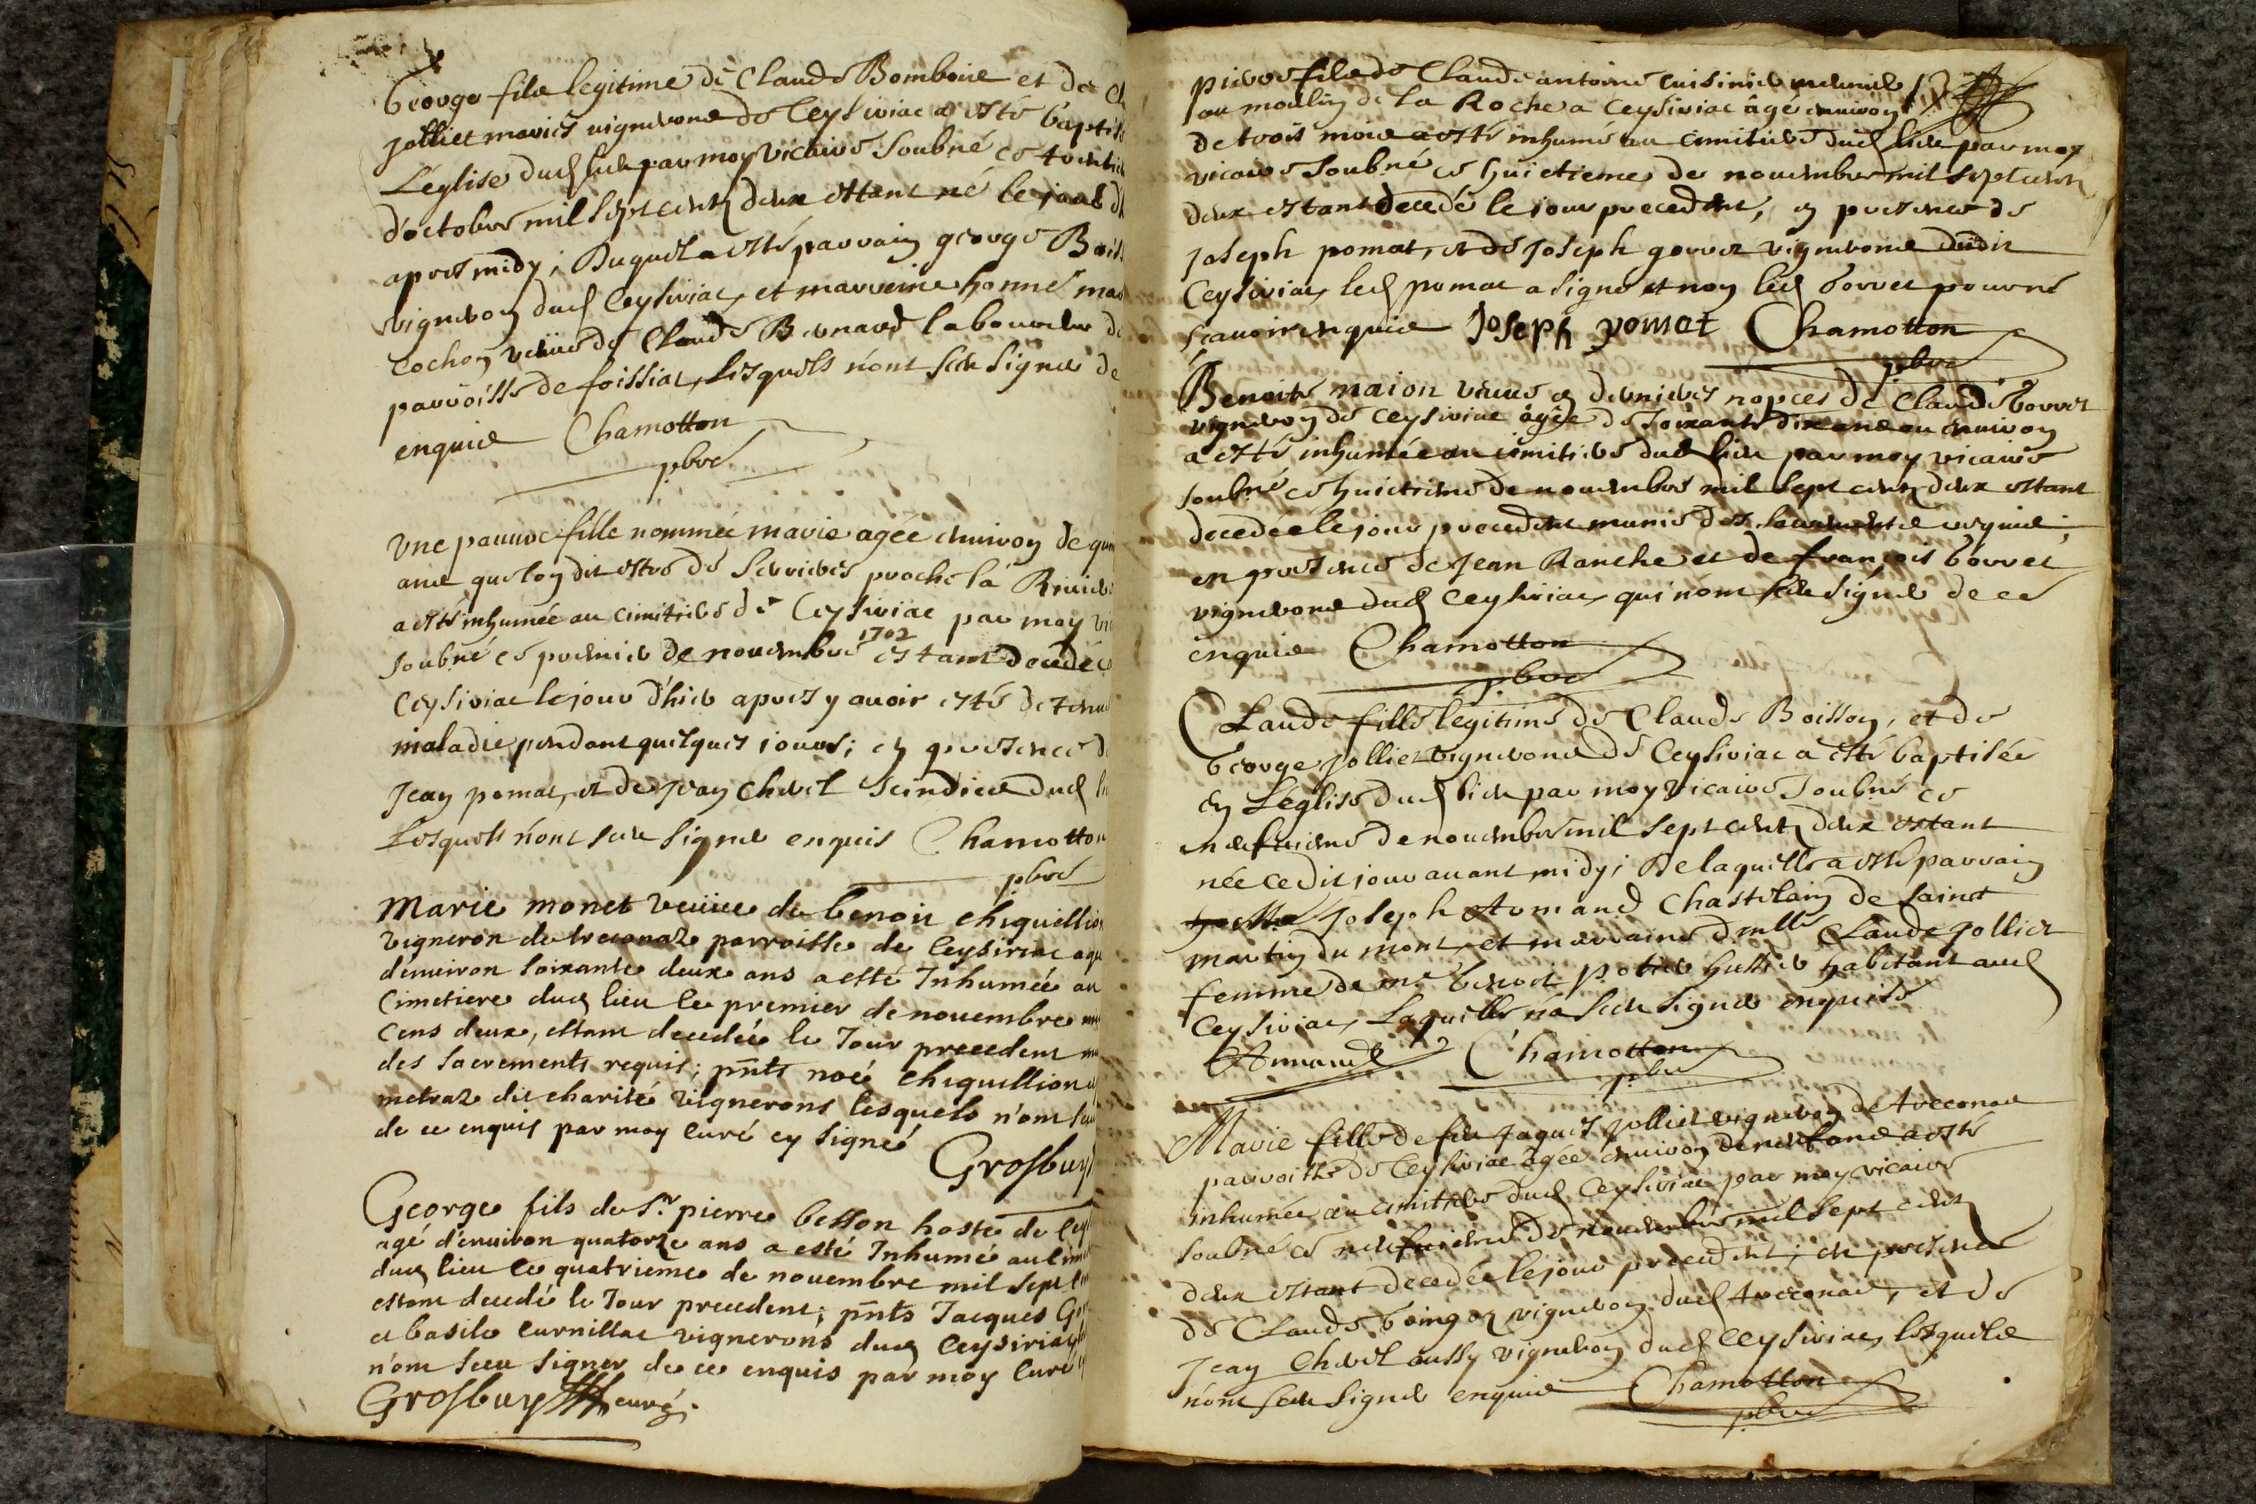 George fils legitime de Claude Bomboin et de
Jolliet mariés vignerons de Ceysiriac a esté baptisé
L'eglise dud lieu par moy vicaire soubné ce trentie
d'octobre mil sept cents deux estant né le
apres midy; Duquel a esté parrain george
vigneron dud Ceysiriac, et marreine honné
Cochon veüve de Claude Bernard laboureur de
parroisse de foissiat, lesquels n'ont sceu signer de
enquis Chamotton
pbre
Une pauvre fille nommée marie agée environ de
ans que lon dit estre de Serrieres proche la
a esté inhumée au cimitiere de Ceysiriac par moy
soubné ce premier de novembre 1702 estant decedée
Ceysiriac le jour d'hier apres y avoir esté detenue
maladie pendant quelques jours; en presence de
Jean pomat, et de Jean Chevel scindics dud
Lesquels n'ont sceu signer enquis Chamotton
pbre
Marie monet veüve de benoit chiquillion
vigneron de treconaz parroisse de Ceysiriac
d'environ soixante deux ans a esté Inhumée au
Cimetiere dud lieu le premier de novembre
Cens deux, estant decedée le Jour precedent
des sacrements requis; pñts noé chiquillion
metraz dit charité vignerons lesquels n'ont
de ce enquis par moy curé cy signé
Grosbuy
George fils de Sr. pierre besson hoste de
agé d'environ quatorze ans a esté Inhumé au
dud lieu le quatrieme de novembre mil sept
estant decedé le Jour precedent; pñts Jacques
et basile Curnillat vignerons dud Ceysiriac
n'ont sceu signer de ce enquis par moy curé
Grosbuy curé.
pierre fils de Claude antoine cuisinier
au moulin de la Roche a Ceysiriac âgé environ
de trois mois a esté inhumé au cimitiere dud lieu par moy
vicaire soubné ce huictieme de novembre mil sept cents
deux estant decedé le jour precedent, en presence de
Joseph pomat, et de Joseph gorret vignerons dudit
Ceysiriac, led pomat a signé et non led Gorret pour ne
scavoir enquis Joseph pomat Chamotton
pbre
Benoite maion veuve en dernieres nopces de Claude Gorret
vigneron de Ceysiriac âgée de soixante dix ans ou environ
a esté inhumée au cimitiere dud lieu par moy vicaire
soubné ce huictieme de novembre mil sept cents deux estant
decedée le jour precedent munie des sacrements requis;
en presence de Jean Ranche et de françois Gorret
vignerons dud Ceysiriac, qui n'ont sceu signer de ce
enquis Chamotton
pbre
Claude fille legitime de Claude Boisson, et de
George Jolliet vignerons de Ceysiriac a esté baptisée
en L'eglise dud lieu par moy vicaire soubné ce
neufvieme de novembre mil sept cents deux estant
née cedit jour avant midy; De laquelle a esté parrain
Joseph Armand Chastelain de Sainct
martin du mont, et marraine dmlle Claude Jollier
femme de me benoit potier hussier habitant aud
Ceysiriac, Laquelle n'a sceu signer enquise
Armand Chamotton
pbre
Marie fille de feu Jaques Jolliet vigneron de treconas
parroisse de Ceysiriac agée environ de neuf ans a esté
inhumée au cimitiere dud Ceysiriac par moy vicaire
soubné ce neufvieme de novembre mil sept cents
deux estant decedée le jour precedent; en presence
de Claude Goingon vigneron dud treconas, et de
Jean Chevel aussy vigneron dud Ceysiriac, lesquels
n'ont sceu signer enquis Chamotton
pbre